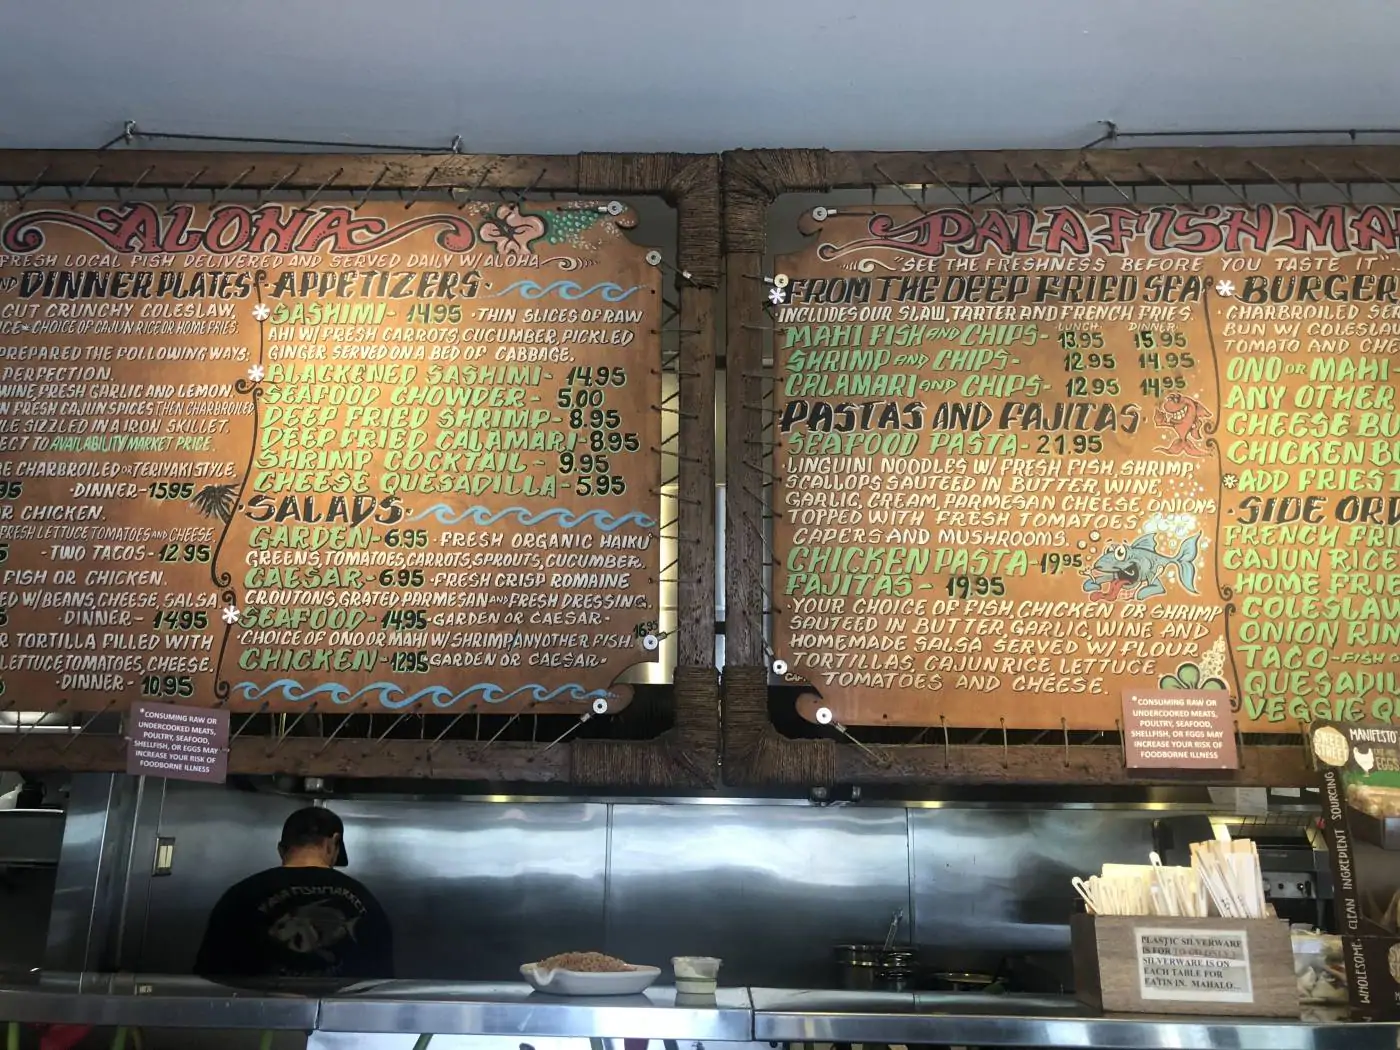 ALOHA
FRESH LOCAL FISH DELIVERED AND SERVED DAILY W/ALOHA
DINNER PLATES
CUT CRUNCHY COLESLAW,
CHOICE OF CAJUN RICE OR HOME FRIES.
PREPARED THE FOLLOWING WAYS:
PERFECTION.
WINE, FRESH GARLIC AND LEMON.
FRESH CAJUN SPICES THEN CHARBROILED
SIZZLED IN A IRON SKILLET.
ECT TO AVAILABILITY/MARKET PRICE.
CHARBROILED OR TERIYAKI STYLE.
95 ·DINNER-15.95
OR CHICKEN.
FRESH LETTUCE TOMATOES AND CHEESE,
-TWO TACOS-12.95
FISH OR CHICKEN.
ED W/BEANS, CHEESE, SALSA
·DINNER-14.95
R TORTILLA FILLED WITH
LETTUCE TOMATOES, CHEESE.
·DINNER-10.95
·APPETIZERS·
*SASHIMI- 14.95 ·THIN SLICES OF RAW
AHI W/ FRESH CARROTS, CUCUMBER, PICKLED
GINGER SERVED ON A BED OF CABBAGE.
*BLACKENED SASHIMI- 14.95
SEAFOOD CHOWDER- 5.00
DEEP FRIED SHRIMP- 8.95
DEEP FRIED CALAMARI-8.95
SHRIMP COCKTAIL- 9.95
CHEESE QUESADILLA- 5.95
·SALADS·
GARDEN-6.95 ·FRESH ORGANIC HAIKU
GREENS, TOMATOES, CARROTS, SPROUTS, CUCUMBER.
CAESAR-6.95 ·FRESH CRISP ROMAINE
CROUTONS, GRATED PARMESAN AND FRESH DRESSING.
*SEAFOOD-14.95-GARDEN OR CAESAR·
·CHOICE OF ONO OR MAHI W/ SHRIMP, ANY OTHER FISH. 16.95
CHICKEN-12.95 GARDEN OR CAESAR·
*CONSUMING RAW OR
UNDERCOOKED MEATS,
POULTRY, SEAFOOD,
SHELLFISH, OR EGGS MAY
INCREASE YOUR RISK OF
FOODBORNE ILLNESS
PAIA FISH MA
"SEE THE FRESHNESS BEFORE YOU TASTE IT"
*FROM THE DEEP FRIED SEA
·INCLUDES OUR SLAW, TARTER AND FRENCH FRIES.
LUNCH: DINNER:
MAHI FISH AND CHIPS- 13.95 15.95
SHRIMP AND CHIPS- 12.95 14.95
CALAMARI AND CHIPS- 12.95 14.95
·PASTAS AND FAJITAS·
SEAFOOD PASTA-21.95
·LINGUINI NOODLES W/ FRESH FISH, SHRIMP,
SCALLOPS SAUTEED IN BUTTER, WINE,
GARLIC, CREAM, PARMESAN CHEESE, ONIONS
TOPPED WITH FRESH TOMATOES,
CAPERS AND MUSHROOMS.
CHICKEN PASTA-19.95
FAJITAS- 19.95
·YOUR CHOICE OF FISH, CHICKEN OR SHRIMP
SAUTEED IN BUTTER, GARLIC, WINE AND
HOMEMADE SALSA SERVED W/ FLOUR
TORTILLAS, CAJUN RICE, LETTUCE
TOMATOES AND CHEESE.
*CONSUMING RAW OR
UNDERCOOKED MEATS,
POULTRY, SEAFOOD,
SHELLFISH, OR EGGS MAY
INCREASE YOUR RISK OF
FOODBORNE ILLNESS
*·BURGER
CHARBROILED SE
BUN W/ COLESLA
TOMATO AND CHE
ONO OR MAHI
ANY OTHER
CHEESE BU
CHICKEN BU
*ADD FRIES
·SIDE ORD
FRENCH FRI
CAJUN RICE
HOME FRIE
COLESLAW
ONION RIN
TACO-FISH O
QUESADIL
VEGGIE Q
MANIFESTO
EGGS
WHOLESOME, CLEAN INGREDIENT SOURCING
FISHMARKET
PLASTIC SILVERWARE
IS FOR TO GO ONLY!
SILVERWARE IS ON
EACH TABLE FOR
EATIN IN. MAHALO...